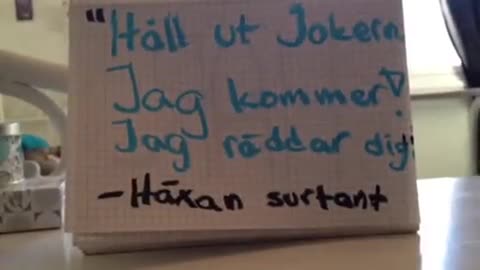 "Håll ut Jokern
Jag kommer!
Jag räddar dig!
-Häxan surtant